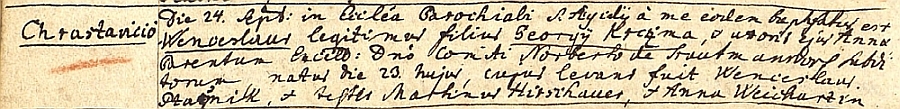 Chrastavicio
Die 24. Sept: in Ecclēa Parochiali S. Aegidij à me eodem baptizatus est
Wenceslaus legitimus filius Georgij Krczma, & uxoris ejus Anna
Parentum Excell: Dnō Comiti Norberto de Trautmansdorf subdi-
torum natus die 23. hujus, cujus levans fuit Wenceslaus
Ptacznik, & testes Mathinus Hirschauer, & Anna Weichartin